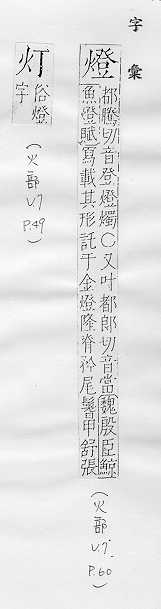 字彙
燈 都騰切音登燈燭〇又叶都郎切音當魏殷臣鯨
魚燈賦寫載其形託于金燈隆脊矜尾鬐甲舒張
(火部
V.7
P.60)
灯 俗燈
字
(火部
V.7
P.49)